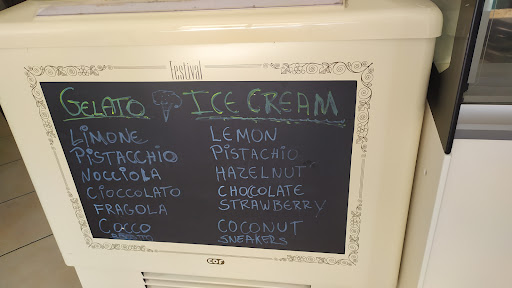 festival
GELATO ICE CREAM
LIMONE LEMON
PISTACCHIO PISTACHIO
NOCCIOLA HAZELNUT
CIOCCOLATO CHOCOLATE
FRAGOLA STRAWBERRY
COCCO COCONUT
SNEAKERS
COF